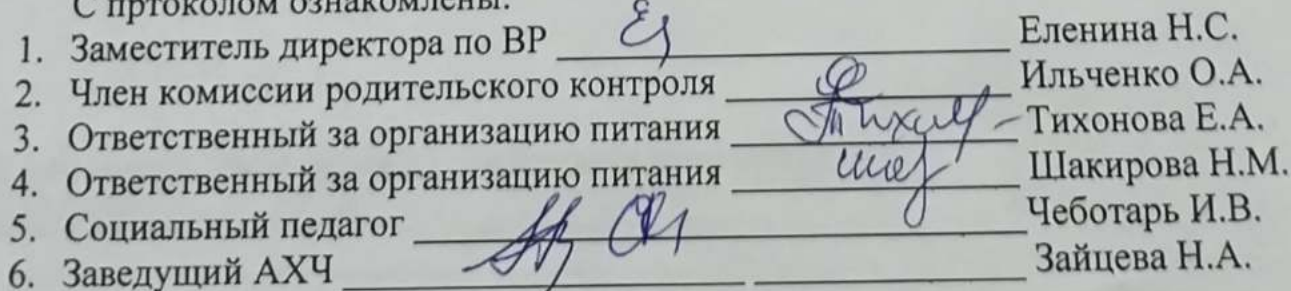 С пртоколом ознакомлены:
1. Заместитель директора по ВР Еленина Н.С.
2. Член комиссии родительского контроля Ильченко О.А.
3. Ответственный за организацию питания Тихонова Е.А.
4. Ответственный за организацию питания Шакирова Н.М.
5. Социальный педагог Чеботарь И.В.
6. Заведущий АХЧ Зайцева Н.А.